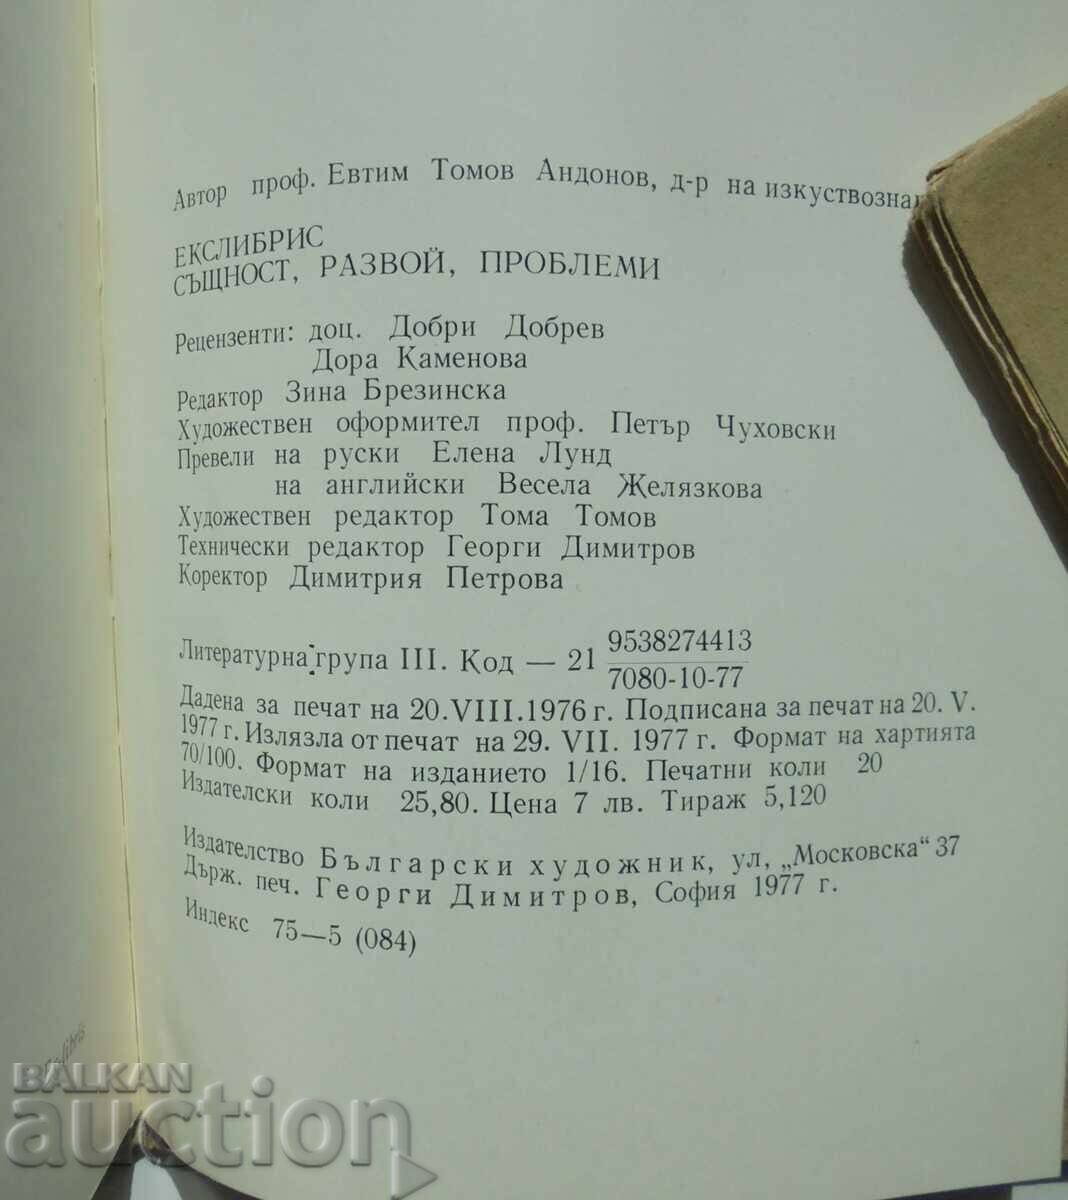 Автор проф. Евтим Томов Андонов, д-р на
ЕКСЛИБРИС
СЪЩНОСТ, РАЗВОЙ, ПРОБЛЕМИ
Рецензенти: доц. Добри Добрев
Дора Каменова
Редактор Зина Брезинска
Художествен оформител проф. Петър Чуховски
Превели на руски Елена Лунд
на английски Весела Желязкова
Художествен редактор Тома Томов
Технически редактор Георги Димитров
Коректор Димитрия Петрова
Литературна група III. Код — 21 9538274413
7080-10-77
Дадена за печат на 20.VIII.1976 г. Подписана за печат на 20. V.
1977 г. Излязла от печат на 29. VII. 1977 г. Формат на хартията
70/100. Формат на изданието 1/16. Печатни коли 20
Издателски коли 25,80. Цена 7 лв. Тираж 5,120
Издателство Български художник, ул, „Московска“ 37
Държ. печ. Георги Димитров, София 1977 г.
Индекс 75—5 (084)
BALKAN
auction